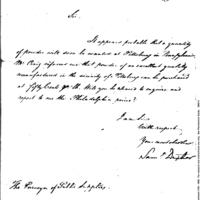 Sir.
It appears probable that a quantity
of powder will soon be wanted at Pittsburg in Pennsylvania,
Mr. Craig informs me that powder of an excellent quality
manufactured in the vicinity of Pittsburg can be purchased
at fifty Cents pr lb. Will you be pleased to enquire and
report to me the Philadelphia price?
I am Sir
with respect
Your most obedient
The Purveyor of Public Supplies